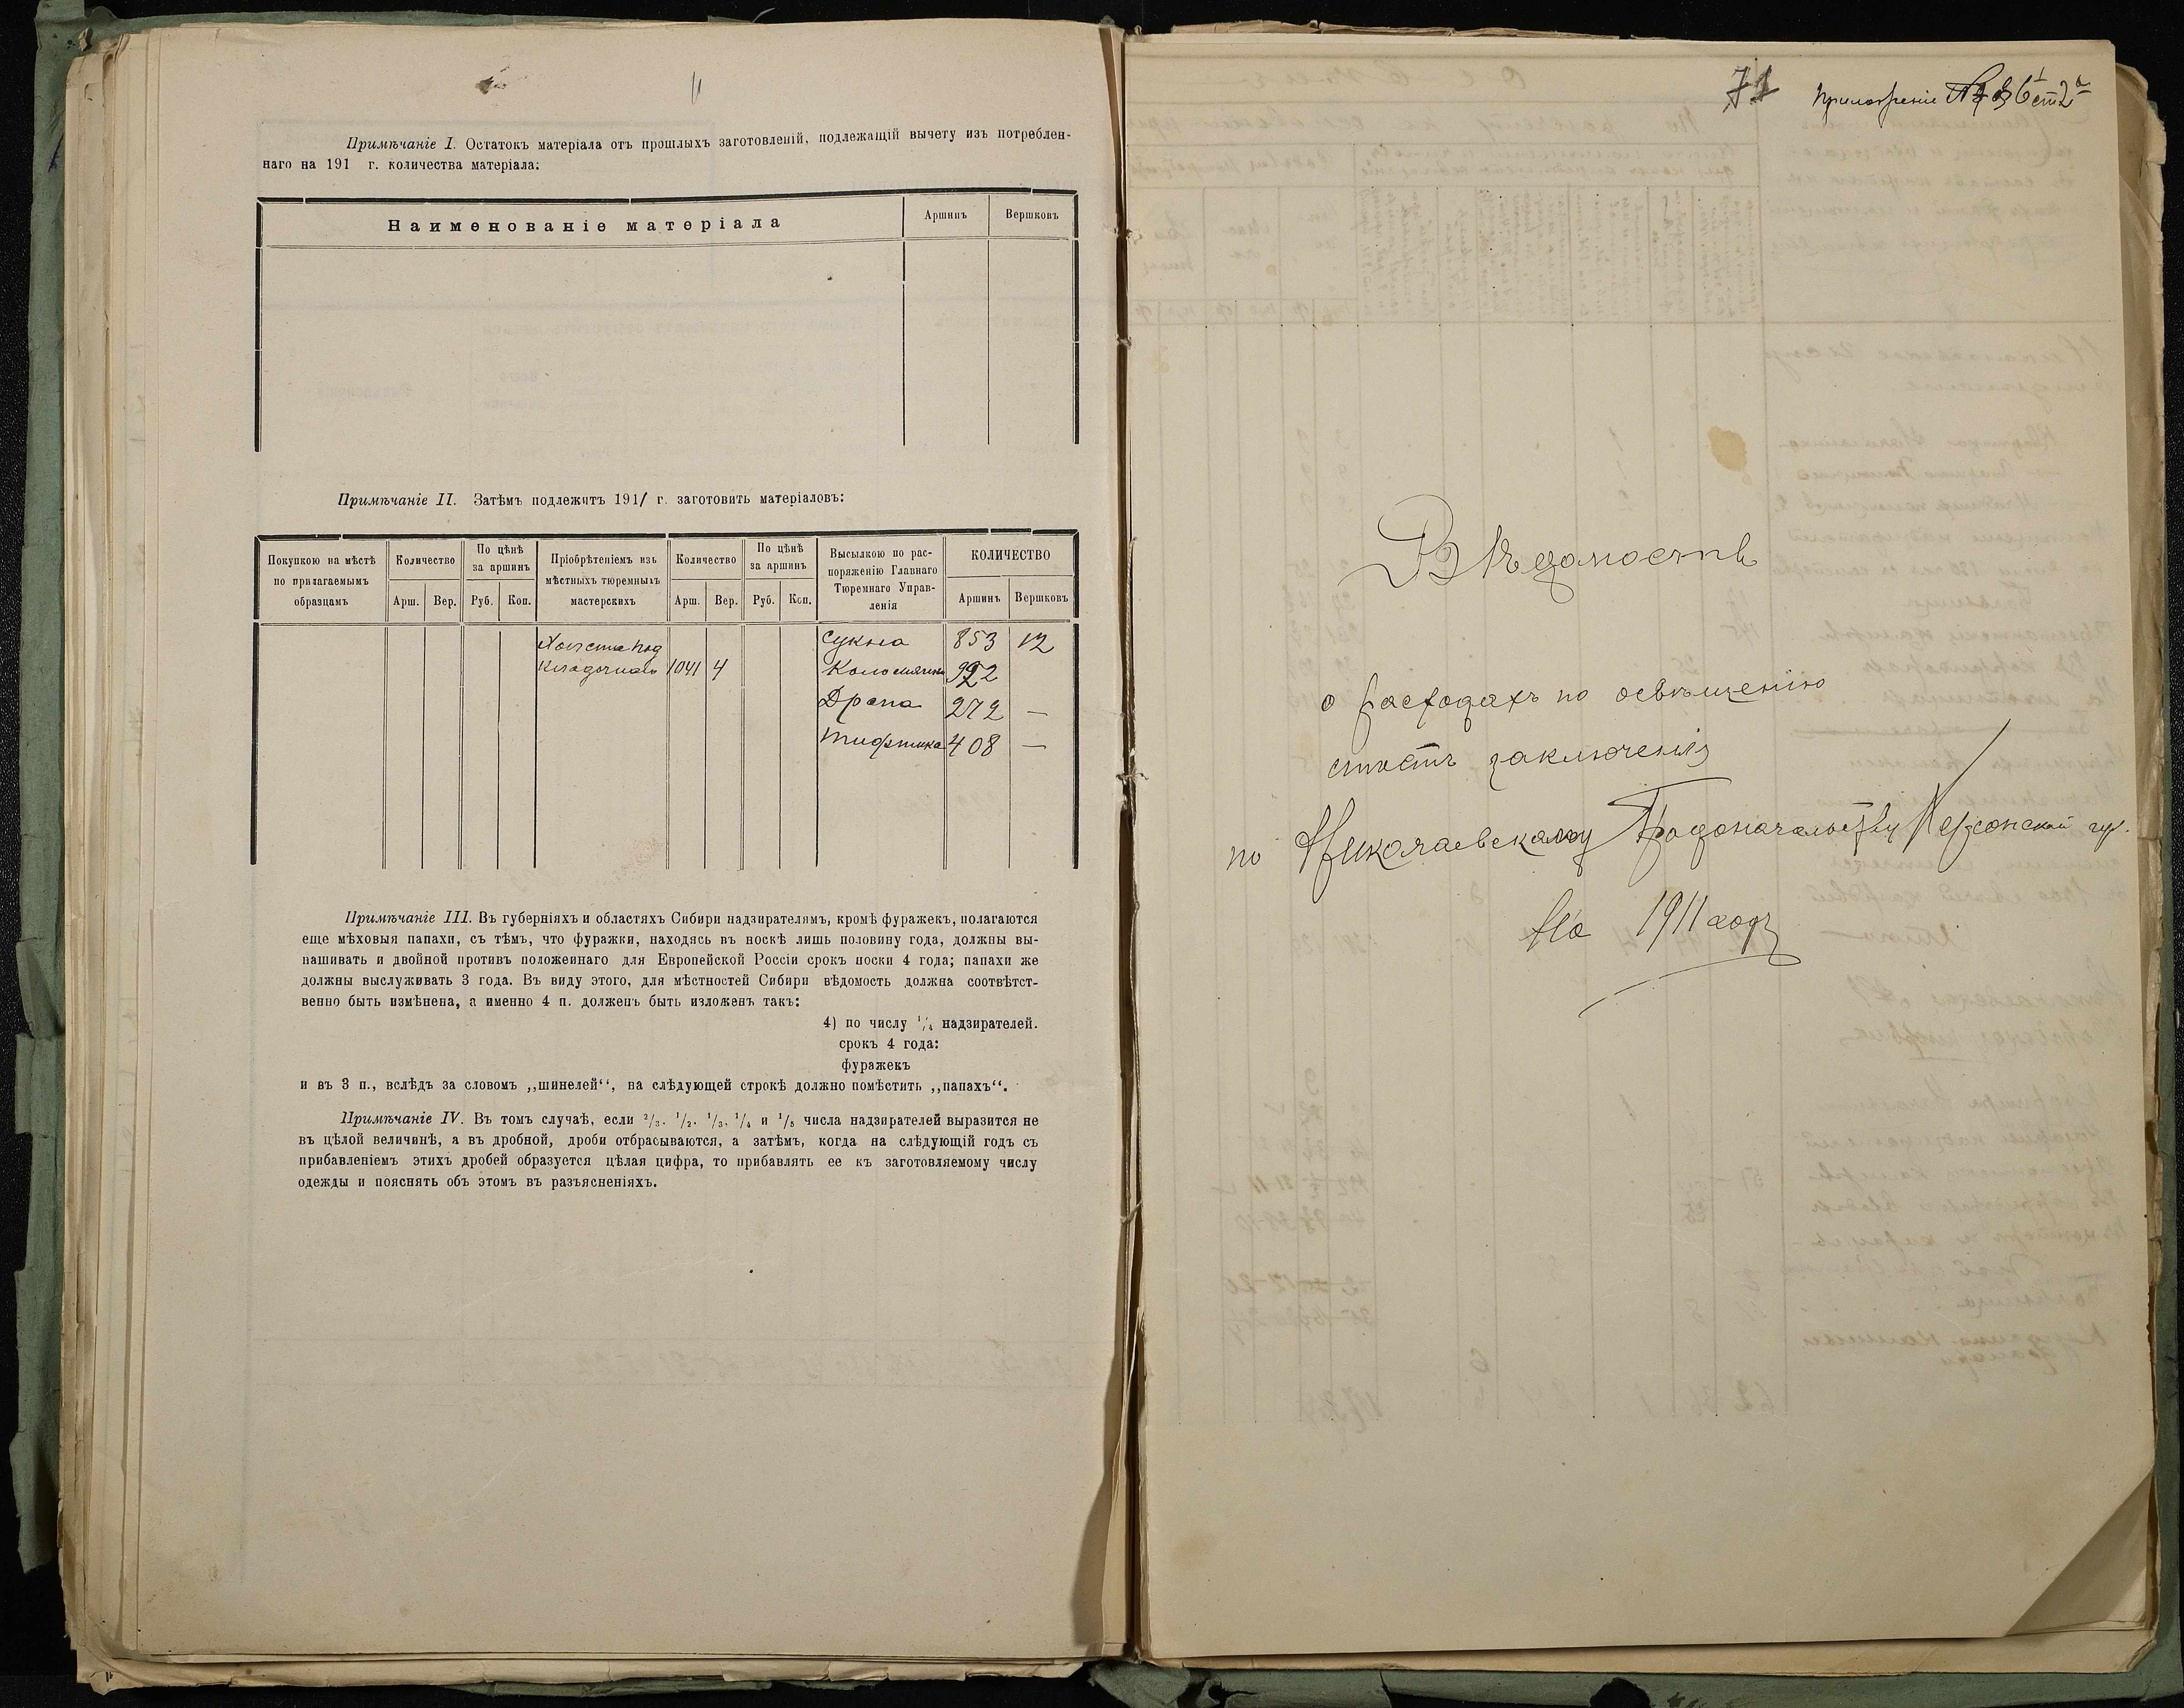 Примѣчаніе I. Остатокъ матеріала отъ прошлыхъ заготовленій, подлежащій вычету изъ потреблен-
наго на 191 г. количества матеріала:
Наименованіе матеріала
Аршинъ
Вершковъ
Примѣчаніе II. Затѣмъ подлежитъ 1911 г. заготовить матеріаловъ:
Покупкою на мѣстѣ
по прилагаемымъ
образцамъ
Количество
Арш. Вер.
По цѣнѣ
за аршинъ
Руб. Коп.
Пріобрѣтеніемъ изъ
мѣстныхъ тюремныхъ
мастерскихъ
Количество
Арш. Вер.
По цѣнѣ
за аршинъ
Руб. Коп.
Высылкою по рас-
поряженію Главнаго
Тюремнаго Управ-
ленія
КОЛИЧЕСТВО
Аршинъ Вершковъ
Холста под
кладочнаго 1041 4
Сукна 853 12
Коломянки 992
Драпа 272 —
Тифтика 408 —
Примѣчаніе III. Въ губерніяхъ и областяхъ Сибири надзирателямъ, кромѣ фуражекъ, полагаются
еще мѣховыя папахи, съ тѣмъ, что фуражки, находясь въ носкѣ лишь половину года, должны вы-
нашивать и двойной противъ положеннаго для Европейской Россіи срокъ носки 4 года; папахи же
должны выслуживать 3 года. Въ виду этого, для мѣстностей Сибири вѣдомость должна соотвѣтст-
венно быть измѣнена, а именно 4 п. долженъ быть изложенъ такъ:
4) по числу 1/4 надзирателей.
срокъ 4 года:
фуражекъ
и въ 3 п., вслѣдъ за словомъ „шинелей“, на слѣдующей строкѣ должно помѣстить „папахъ“.
Примѣчаніе IV. Въ томъ случаѣ, если 2/3. 1/2. 1/3. 1/4 и 1/5 числа надзирателей выразится не
въ цѣлой величинѣ, а въ дробной, дроби отбрасываются, а затѣмъ, когда на слѣдующій годъ съ
прибавленіемъ этихъ дробей образуется цѣлая цифра, то прибавлять ее къ заготовляемому числу
одежды и пояснять объ этомъ въ разъясненіяхъ.
71
Приложеніе
Вѣдомость
о расходахъ по освѣщенію
мѣстъ заключенія
по Николаевскому Градоначальству Херсонской губ.
На 1911 годъ